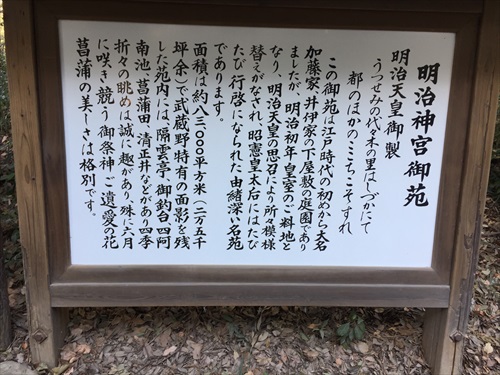 明治神宮御苑
明治天皇御製
うつせみの代々木の里はしづかにて
都のほかのここちこそすれ
この御苑は江戸時代の初めから大名
加藤家、井伊家の下屋敷の庭園であり
ましたが、明治初年皇室のご料地と
なり、明治天皇の思召により所々模様
替えがなされ、昭憲皇太后にはたび
たび行啓になられた由緒深い名苑
であります。
面積は約八三〇〇〇平方米(二万五千
坪余)で武蔵野特有の面影を残
した苑内には、隔雲亭 御釣台 四阿
南池 菖蒲田 清正井などがあり四季
折々の眺めは誠に趣があり、殊に六月
に咲き競う御祭神ご遺愛の花
菖蒲の美しさは格別です。